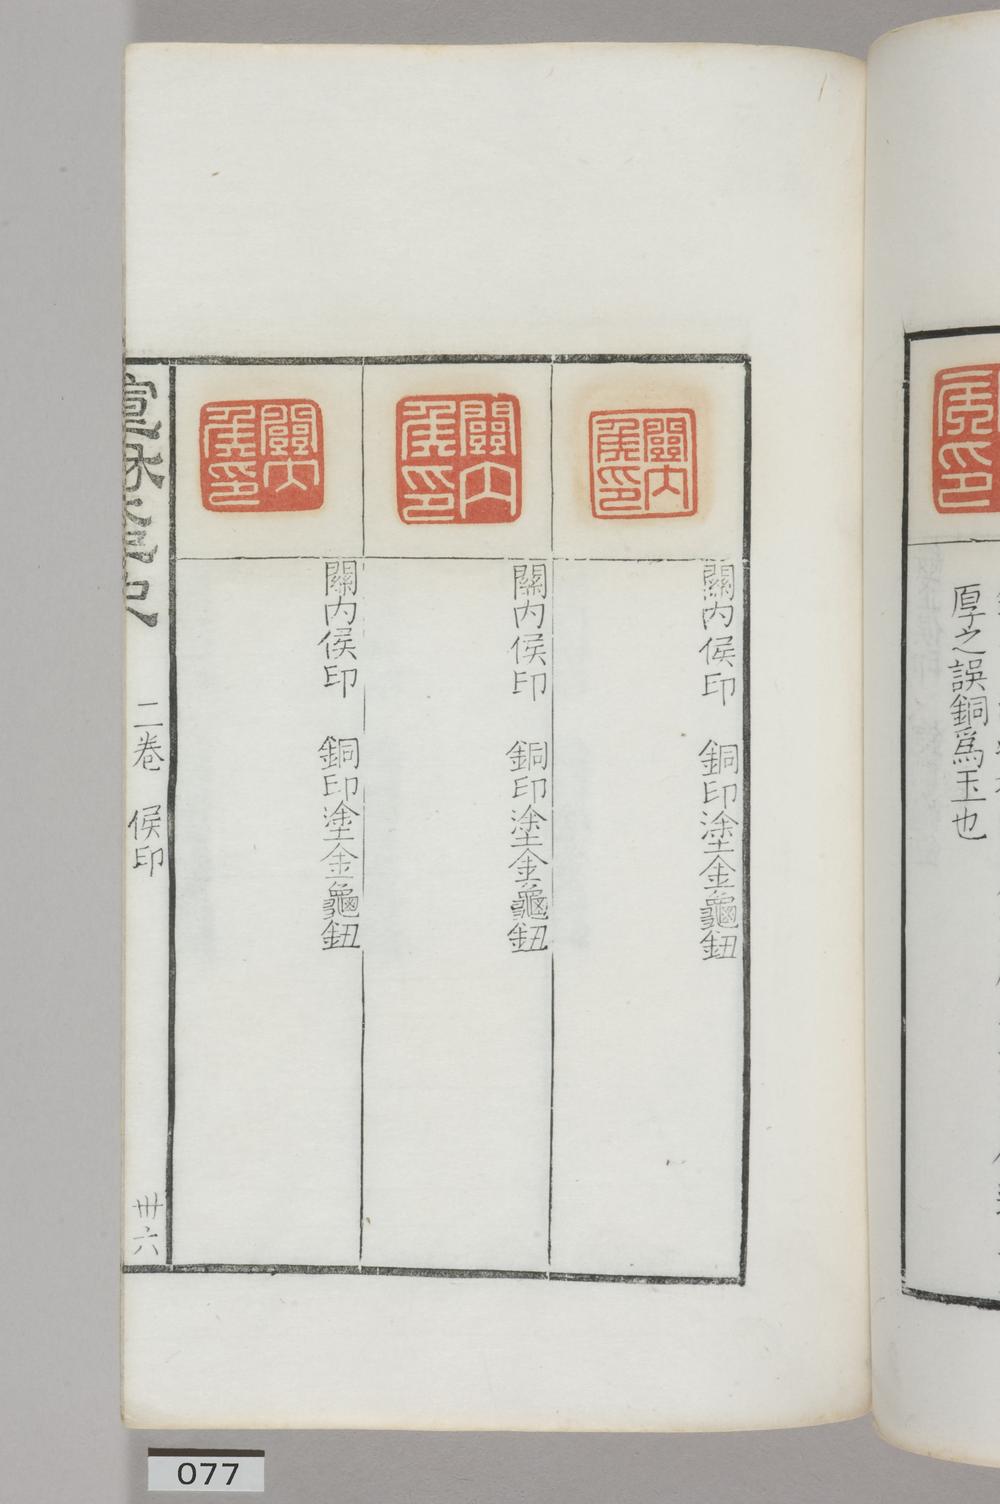 厚之誤銅爲玉也
關內侯印
關內侯印　銅印塗金龜鈕
關內侯印
關內侯印　銅印塗金龜鈕
關內侯印
關內侯印　銅印塗金龜鈕
宣和集古印史　二卷　侯印　卅六
077